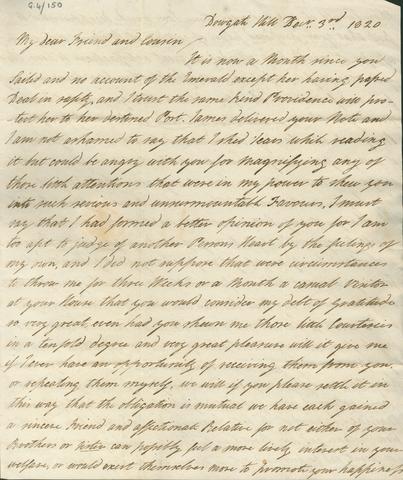 G.4/150
Dowgate Hill Decr. 3rd 1820
My dear Friend and Cousin
It is now a Month since you
Sailed and no account of the Emerald except her having passed
Deal in safety, and I trust the same kind Providence will pro-
tect her to her destined Port. James delivered your Note and
I am not ashamed to say that I shed Tears while reading
it but could be angry with you for magnifying any of
those little attentions that were in my power to shew you
into such serious and unsurmountable Favours, I must
say that I had formed a better opinion of you for I am
too apt to judge of another Persons Heart by the feelings of
my own, and I did not suppose that were circumstances
to throw me for three Weeks or a Month a casual Visitor
at your House that you would consider my debt of Gratitude
so very great, even had you shewn me those little Courtesies
in a tenfold degree and very great pleasure will it give me
if I ever have an opportunity of receiving them from you,
or repeating them myself, we will if you please settle it in
this way that the obligation is mutual we have each gained
a sincere Friend and affectionate Relative for not either of your
Brothers or Sister can possibly feel a more lively interest in your
welfare, or would exert themselves more to promote your happiness